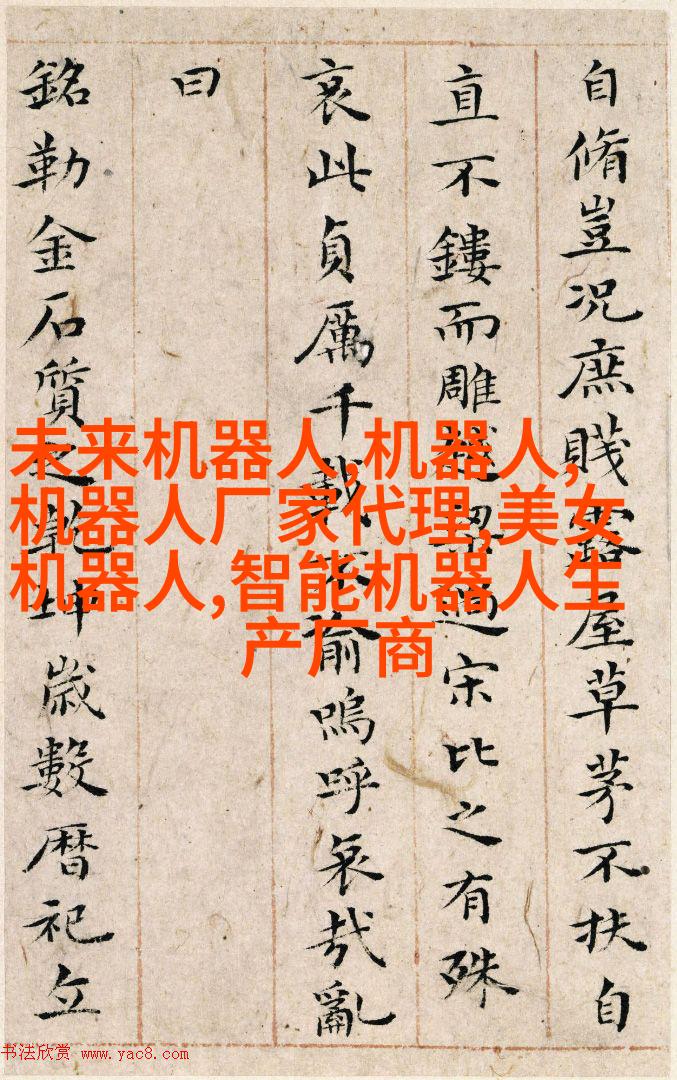 自脩豈况庶賤露屋草茅不扶自
直不鏤而雕越梁過宋比之有殊
哀此貞厲千載不渝嗚呼哀哉亂
曰
銘勒金石質之乾坤歲數暦祀立
未来机器人,机器人,
机器人厂家代理,美女
机器人,智能机器人生
产厂商
书法欣赏 www.yac8.com